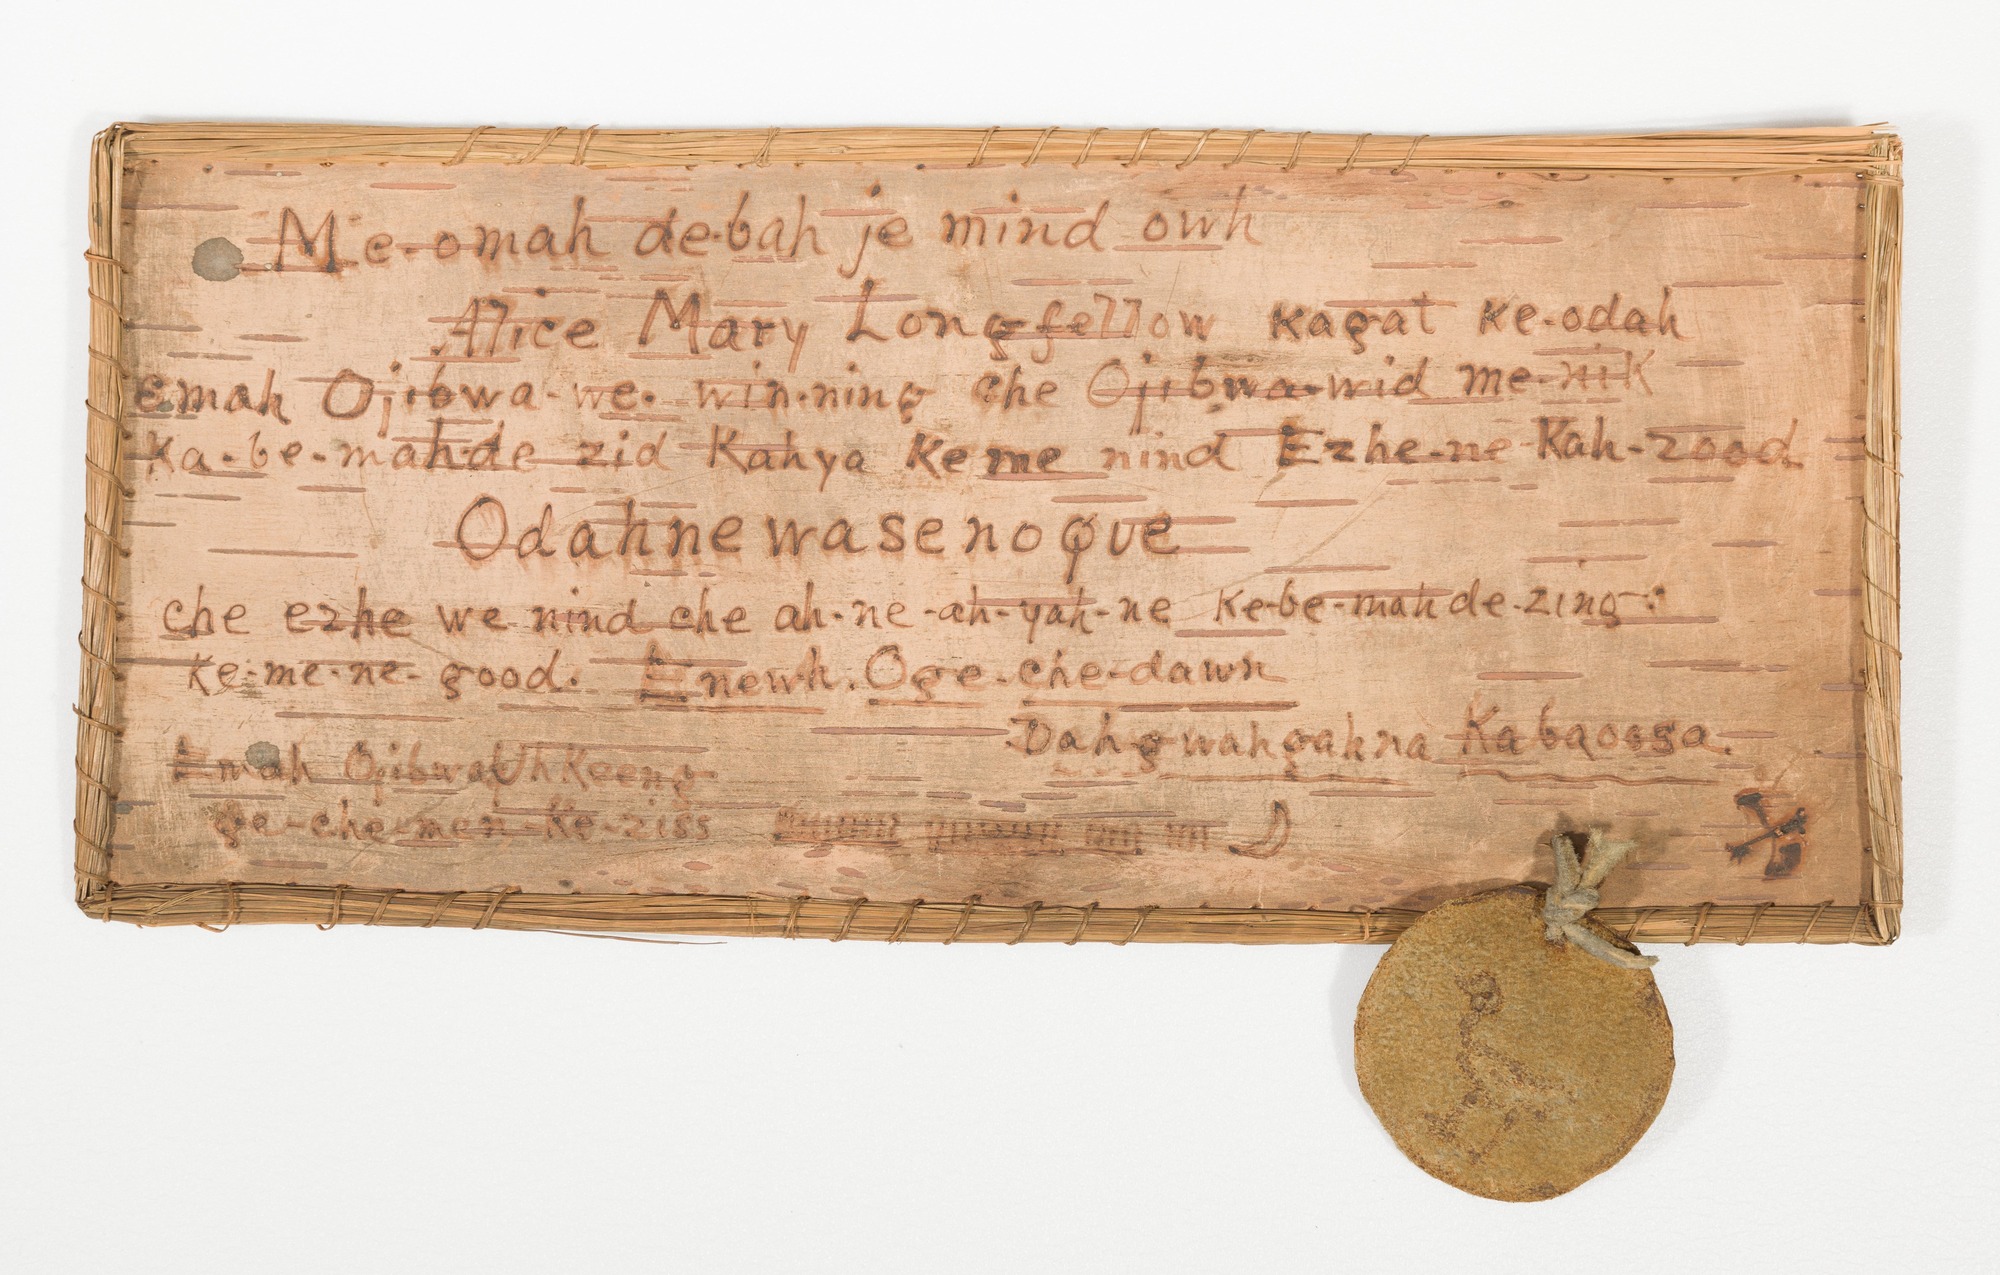 Me-omah de-bah je mind owh
Alice Mary Longfellow Kagat Ke-odah
emah Ojibwa-we. win-ning che Ojibwa-wid me-nik
Ka-be-mah-de zid Kahya Keme nind Ezhe-ne-Kah-zood
Odahnewasenoque
che ezhe we nind che ah-ne-ah-yah-ne Ke-be-mah de-zing:
Ke-me-ne-good. Enewh. Oge-che-dawn
Dahgwahgahna Kabaossa.
Emah Ojibwa Uh Keeng
ge-che-men-Ke-ziss